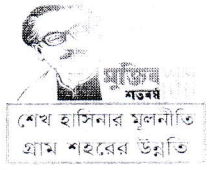 মুজিব
শতবর্ষ
শেখ হাসিনার মূলনীতি
গ্রাম শহরের উন্নতি